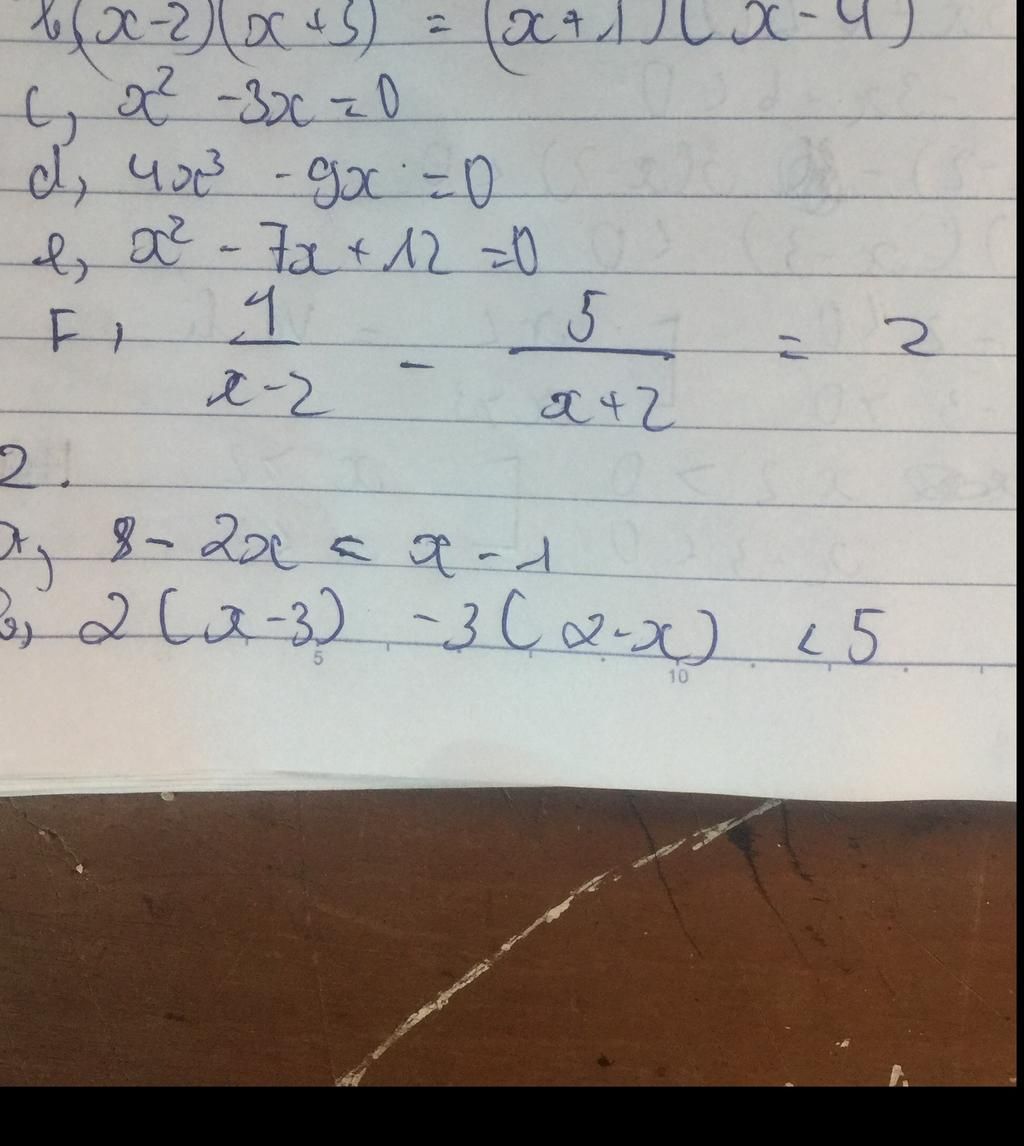 b, (x-2)(x+3) = (x+1)(x-4)
c, x² -3x=0
d, 4x³ - 9x =0
e, x² - 7x + 12 =0
F, 1/(x-2) - 5/(x+2) = 2
2.
a, 8- 2x < x - 1
b, 2(x-3) -3(2-x) < 5
5 10